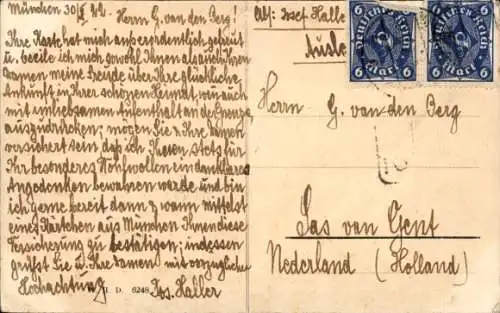 München 30/X 22.
Herrn G. van den Berg!
Ihre Karte hat mich außerordentlich gefreut
u. beeile ich mich sowohl Ihnen als auch Ihren
Damen meine Freude über Ihre glückliche
Ankunft in Ihrer schönen Heimat, wie auch
mit unliebsamen Aufenthalt an der Grenze
auszudrücken; mögen Sie u. Ihre Damen
versichert sein daß ich Ihnen stets für
Ihr besonderes Wohlwollen ein dankbares
Angedenken bewahren werde und bin
ich gerne bereit dann & wann mittelst
eines Kärtchen aus München Ihnen diese
Versicherung zu bestätigen; indessen
grüßt Sie u. Ihre Damen mit vorzüglicher
Hochachtung Jos. Haller
H. D. 6248
Abs: Josef Halle
Ausl
Deutsches Reich
6 Mark 6
Deutsches Reich
6 Mark 6
Herrn G. van den Berg
Sas van Gent
Nederland (Holland)